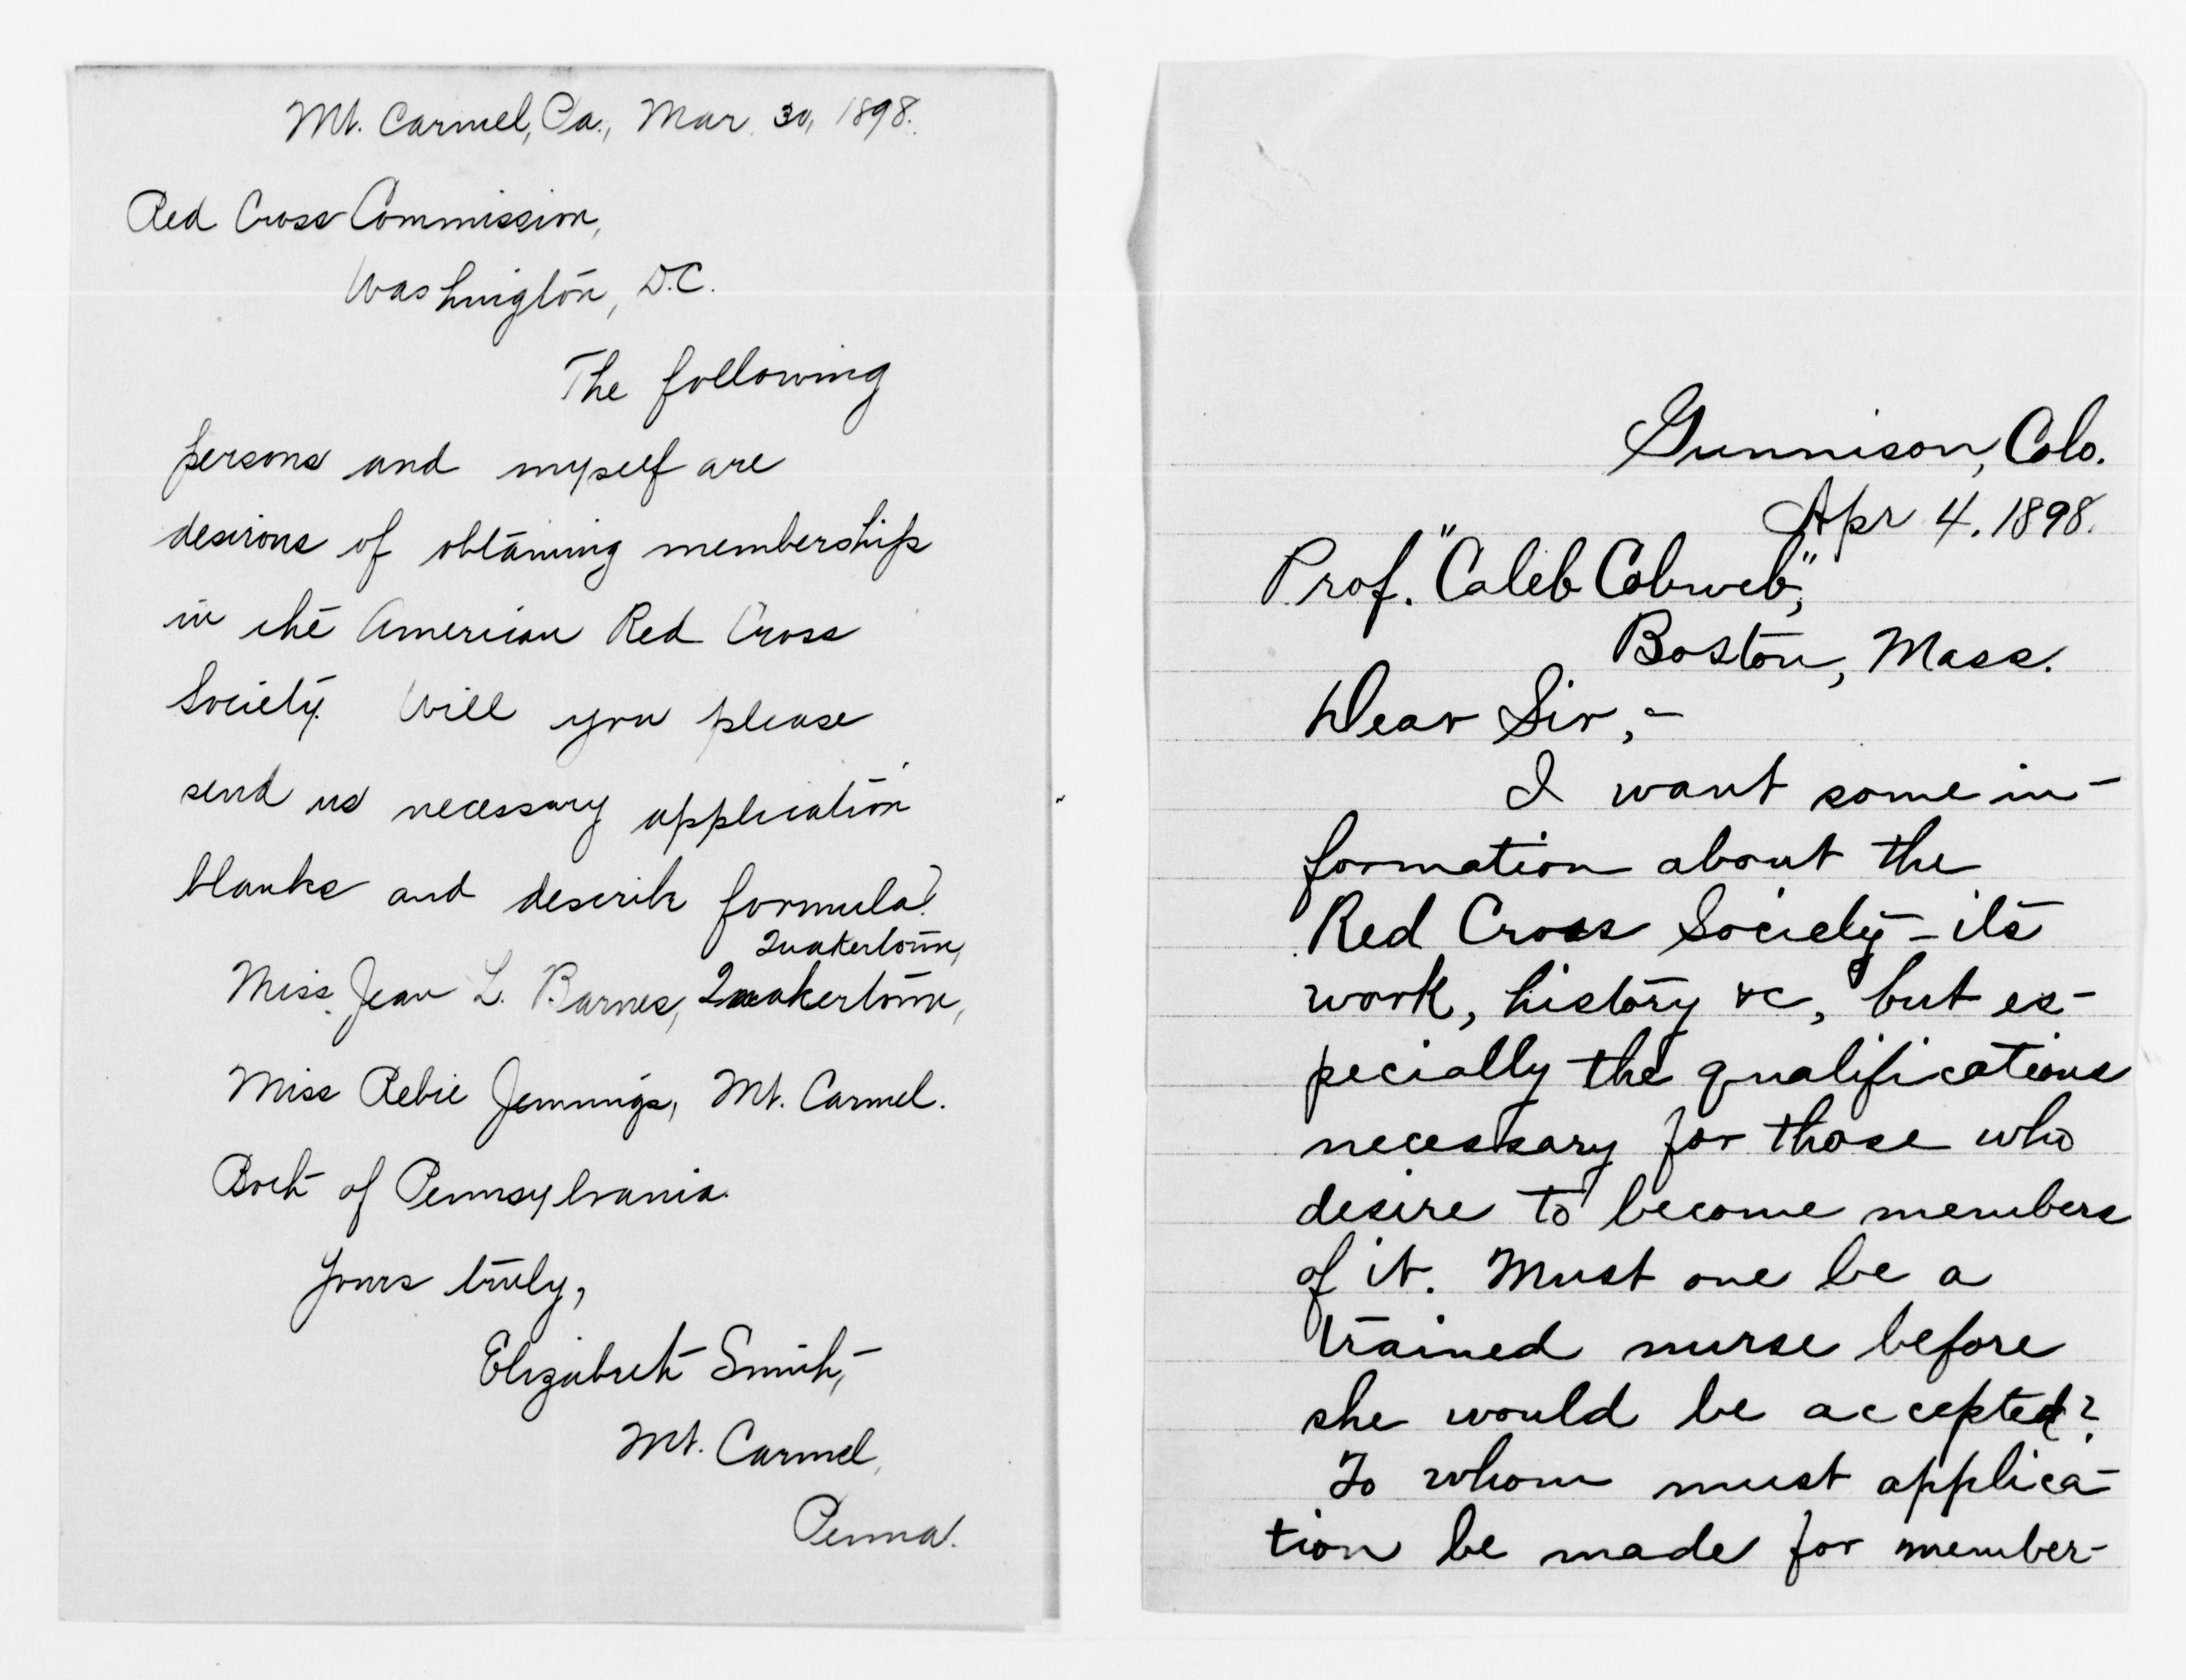 Mt. Carmel, Pa., Mar. 30, 1898.
Red Cross Commission,
Washington, D.C.
The following
persons and myself are
desirous of obtaining membership
in the American Red Cross
Society. Will you please
send us necessary application
blanks and describe formula?
Quakertown,
Miss. Jean L. Barnes, Quakertown,
Miss Rebie Jennings, Mt. Carmel.
Both of Pennsylvania.
Yours truly,
Elizabeth Smith,
Mt. Carmel,
Penna.
Gunnison, Colo.
Apr 4. 1898.
Prof. "Caleb Cobweb",
Boston, Mass.
Dear Sir,-
I want some in-
formation about the
Red Cross Society - its
work, history &c, but es-
pecially the qualifications
necessary for those who
desire to become members
of it. Must one be a
trained nurse before
she would be accepted?
To whom must applica-
tion be made for member-